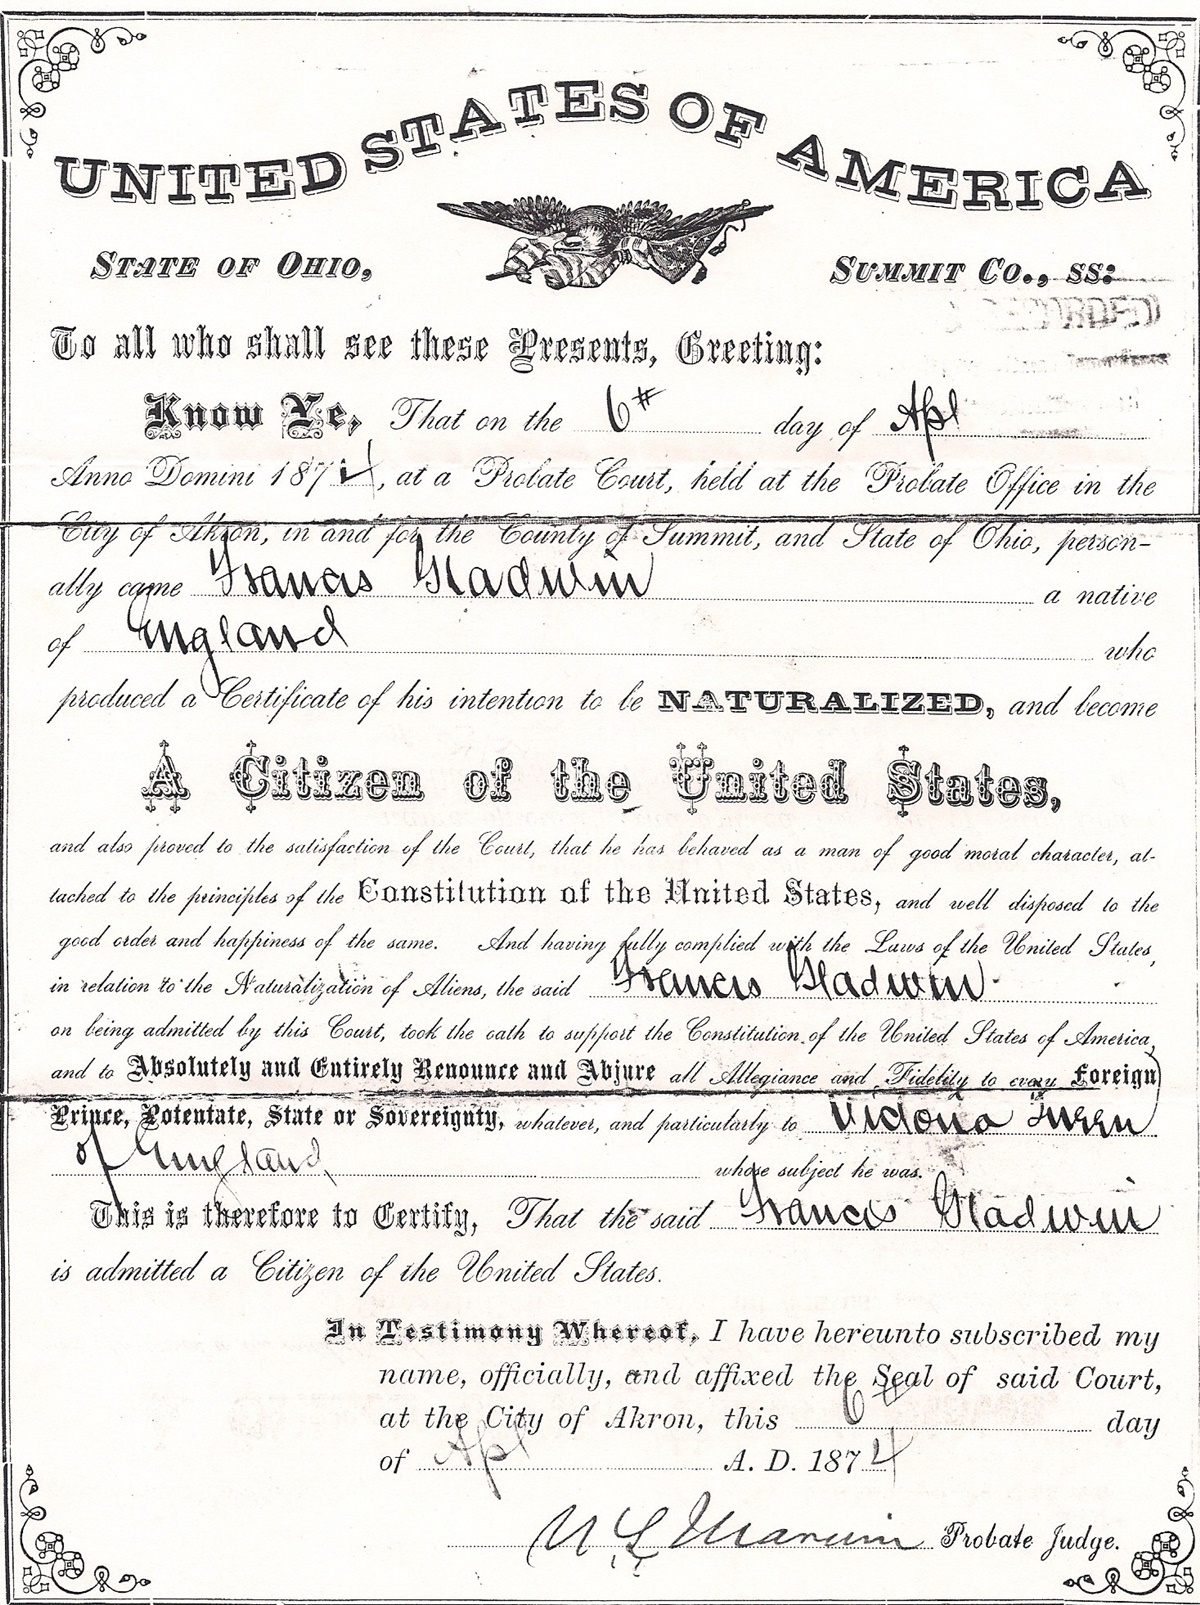 UNITED STATES OF AMERICA
STATE OF OHIO, SUMMIT CO., SS:
RECORDED
To all who shall see these Presents, Greeting:
Know Ye, That on the 6th day of Apl
Anno Domini 1874, at a Probate Court, held at the Probate Office in the
City of Akron, in and for the County of Summit, and State of Ohio, person-
ally came Francis Gladwin a native
of England who
produced a Certificate of his intention to be NATURALIZED, and become
A Citizen of the United States,
and also proved to the satisfaction of the Court, that he has behaved as a man of good moral character, at-
tached to the principles of the Constitution of the United States, and well disposed to the
good order and happiness of the same. And having fully complied with the Laws of the United States,
in relation to the Naturalization of Aliens, the said Francis Gladwin
on being admitted by this Court, took the oath to support the Constitution of the United States of America,
and to Absolutely and Entirely Renounce and Abjure all Allegiance and Fidelity to every Foreign
Prince, Potentate, State or Sovereignty, whatever, and particularly to Victoria Queen
of England whose subject he was.
This is therefore to Certify, That the said Francis Gladwin
is admitted a Citizen of the United States.
In Testimony Whereof, I have hereunto subscribed my
name, officially, and affixed the Seal of said Court,
at the City of Akron, this 6th day
of Apl A. D. 1874
U L Marvin Probate Judge.